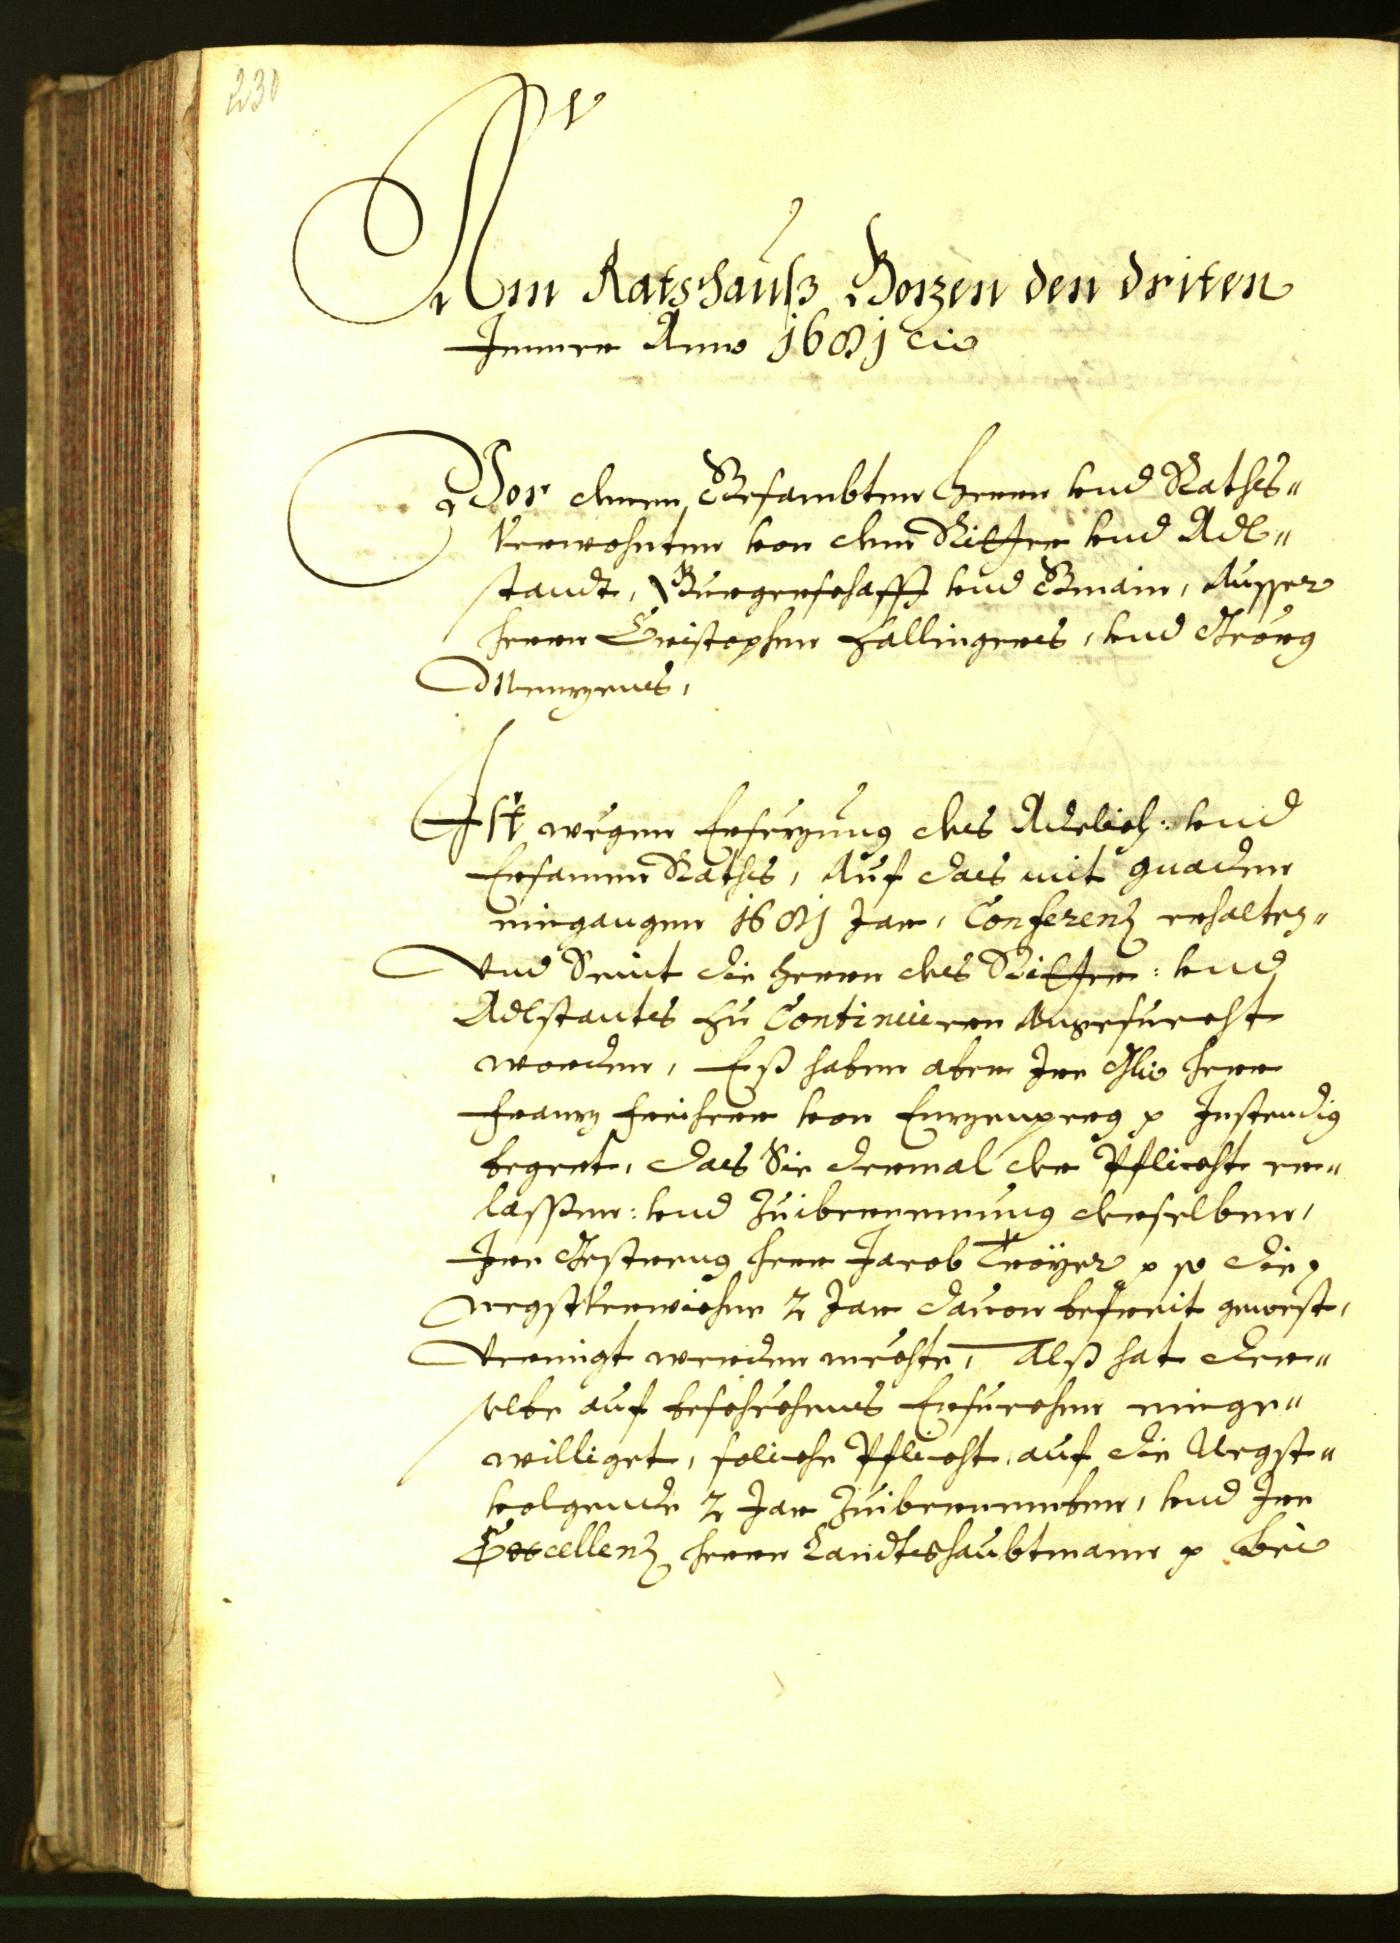 230
Am Ratshauß Bozen den driten
Jenner Anno 1681 etc
Vor denen Gesambten Herrn vnd Raths-
Verwohnten von dem Ritter vnd Adl-
standt, Burgerschafft vnd Gmain, Ausser
Herrn Cristophen Hallingers, vnd Georg
Menzens,
Ist wegen Ersezung des Adelich: vnd
Ersamen Raths, Auf das mit gnaden
eingangen 1681 Jar, Conferenz erhalten,
Vnd Seint die Herrn des Ritter: vnd
Adlstants zu Continuiren Angesuecht
worden, Eß haben aber Ire Herr
Franz Freiherr von Enzenperg p Instendig
begert, das Sie dermal der Pflicht er-
lassen: vnd zuibernemung derselben,
Ire Gestreng Herr Jacob Troÿer p so die
negstverwichne 2 Jar dauon befreit gewest,
Vermigt werden mechte, Alß hat der-
selbe auf beschechens Ersuechen einge-
williget, soliche Pflicht, auf die Negst-
volgende 2 Jar zuibernemben, vnd Ire
Excellenz Herrn Landtshaubtmann p bei